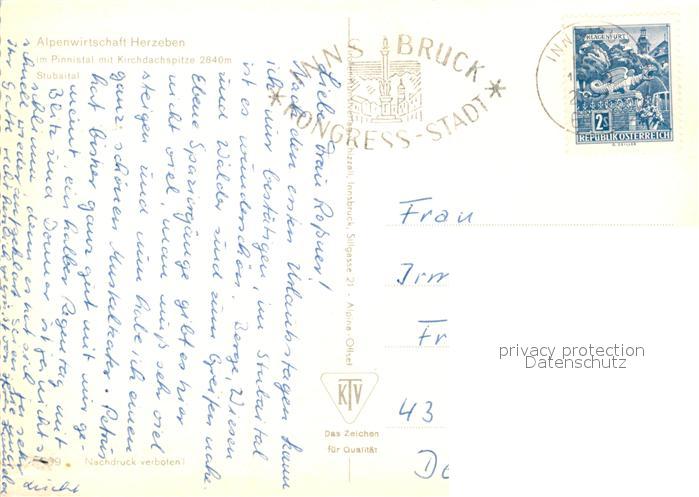 Alpenwirtschaft Herzeben
im Pinnistal mit Kirchdachspitze 2840m
Stubaital
INNSBRUCK
KONGRESS-STADT
KLAGENFURT
2s
REPUBLIK ÖSTERREICH
Liebe Frau Roßner!
Nach den ersten Urlaubstagen kann
ich nur bestätigen, im Stubaital
ist es wunderschön. Berge, Wiesen
und Wälder sind zum Greifen nahe.
Ebene Spaziergänge gibt es hier
nicht viel, man muß sehr viel
steigen und nun habe ich einen
ganz schönen Muskelkater. Petrus
hat bisher ganz gut mit uns ge-
meint ein halber Regentag mit
Blitz und Donner ist ja nicht so
schlimm, denn es hat sich
schnell wieder aufgeklärt
Innsbruck, Sillgasse 21 - Alpina-Offset
KTV
Das Zeichen
für Qualität
Nachdruck verboten!
Frau
Irm
Fr
43
De
privacy protection
Datenschutz